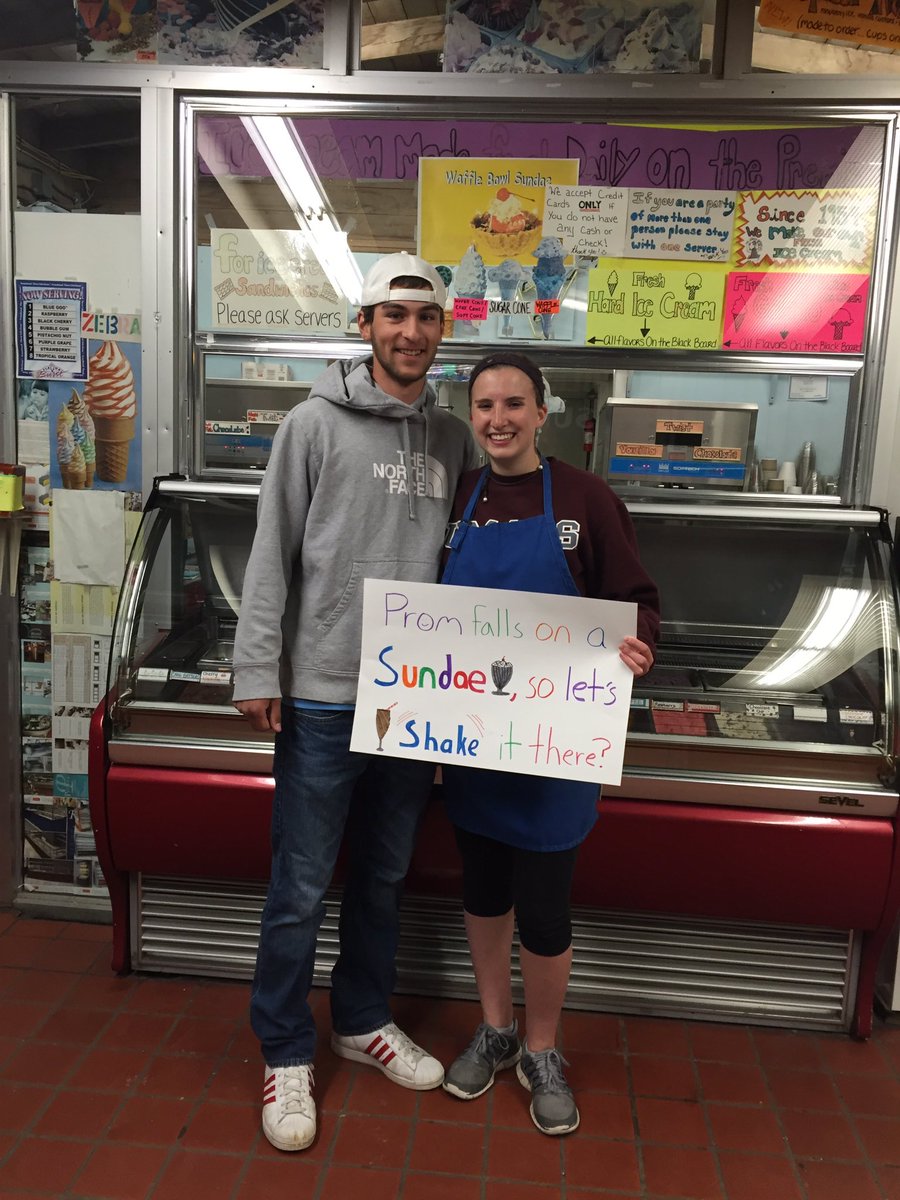 (made to order... cups on
Ice Cream Made Daily on the Pre
Waffle Bowl Sundae
We accept Credit
Cards ONLY If
You do not have
any Cash or
Check!
If you are a party
of More than one
person please stay
with one server.
Since
we Make our own
Ice Cream!
for ice cream
Sandwiches
Please ask servers
SUGAR CONE
WAFFLE
CONE
Fresh
Hard Ice Cream
All Flavors On the Black Board
All Flavors On the Black Board
NOW SERVING
1 BLUE GOO
2 RASPBERRY
3 BLACK CHERRY
4 BUBBLE GUM
5 PISTACHIO NUT
6 PURPLE GRAPE
7 STRAWBERRY
8 TROPICAL ORANGE
ZEBRA
Chocolate
Vanilla
Twist
Chocolate
THE
NORTH
FACE
Prom falls on a
Sundae, so let's
Shake it there?
SEVEL